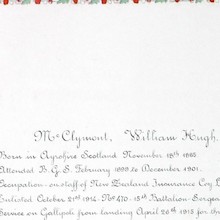 McClymont, William Hugh.
Born in Ayrshire Scotland November 18th 1885
Attended B.G.S. February 1899 to December 1901.
Occupation - on staff of New Zealand Insurance Coy L
Enlisted October 21st 1914. No 470 - 15th Battalion. Serge
Service on Gallipoli from landing April 25th 1915 for th